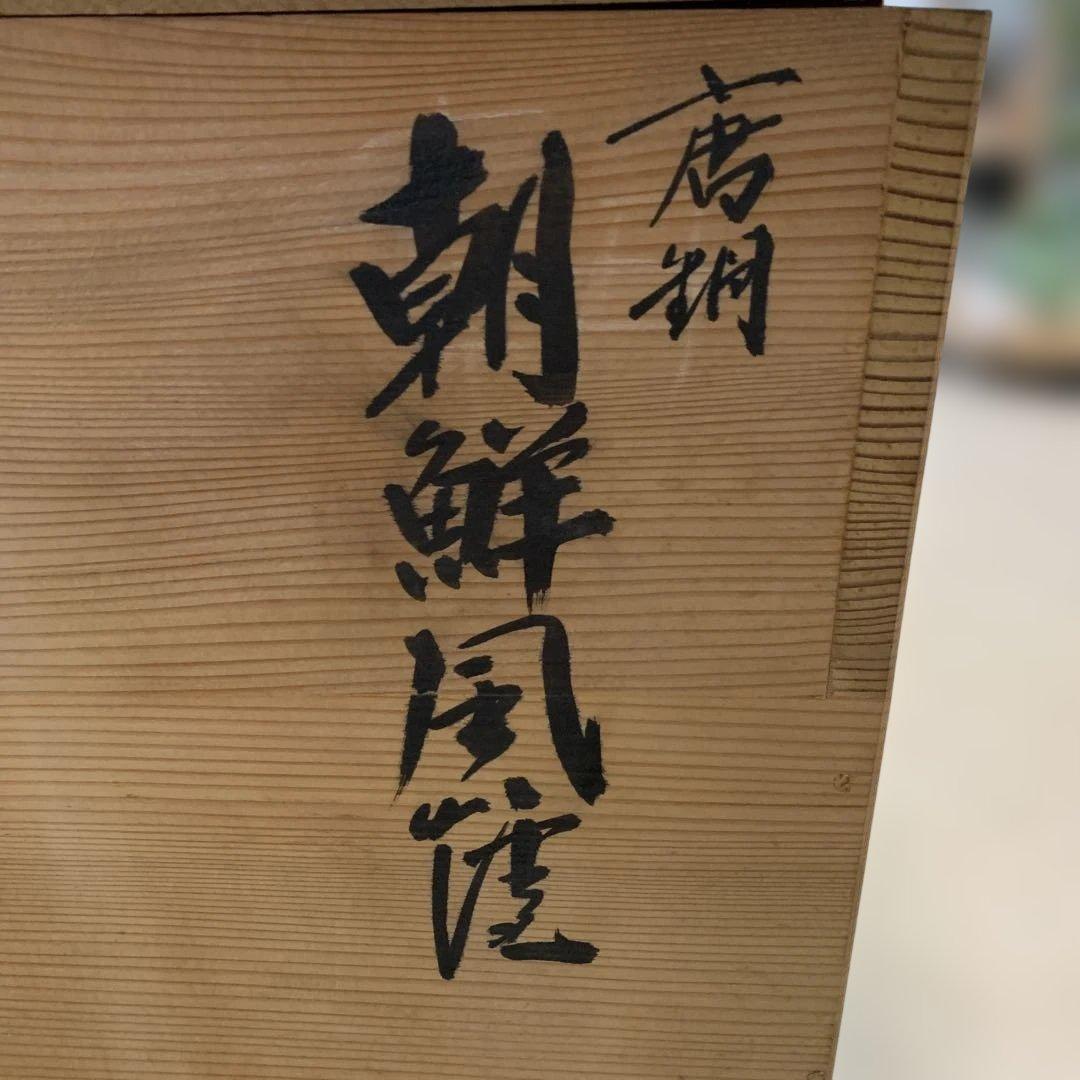 唐銅
朝鮮風爐